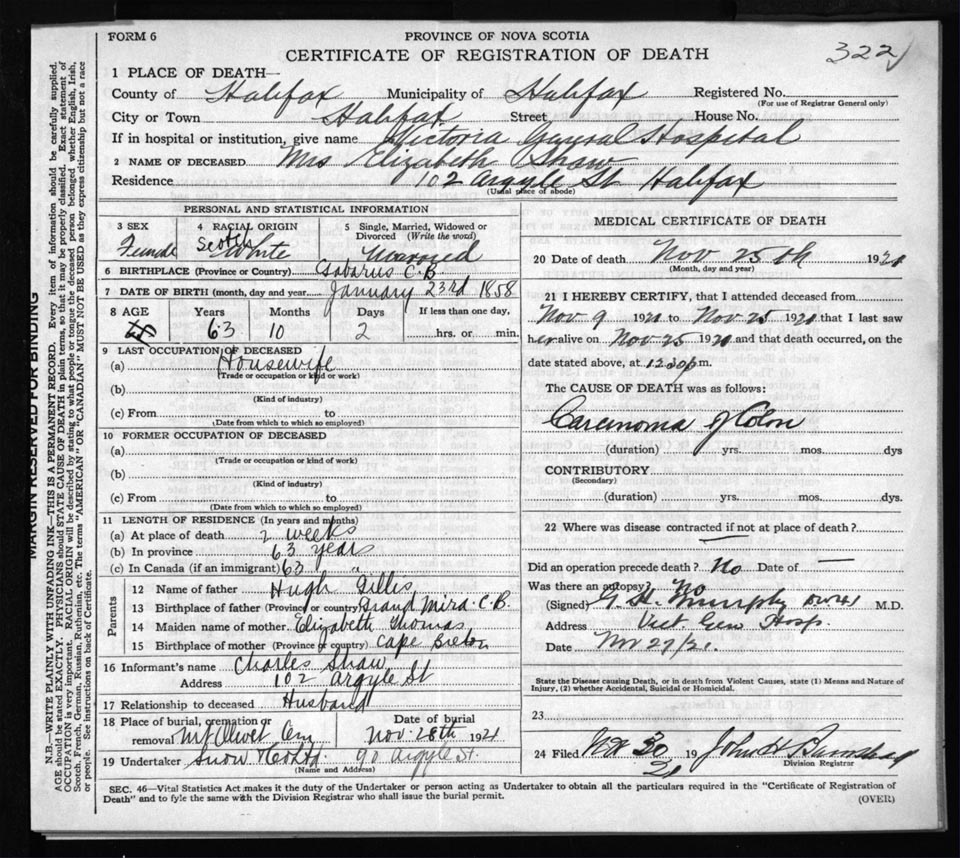 FORM 6
PROVINCE OF NOVA SCOTIA
CERTIFICATE OF REGISTRATION OF DEATH
322
1 PLACE OF DEATH—
County of Halifax Municipality of Halifax Registered No.
(For use of Registrar General only)
City or Town Halifax Street House No.
If in hospital or institution, give name Victoria General Hospital
2 NAME OF DECEASED Mrs Elizabeth Shaw
Residence 102 Argyle St Halifax
(Usual place of abode)
PERSONAL AND STATISTICAL INFORMATION
3 SEX Female
4 RACIAL ORIGIN Scotch White
5 Single, Married, Widowed or Divorced (Write the word) Married
6 BIRTHPLACE (Province or Country) Gabarus C.B
7 DATE OF BIRTH (month, day and year) January 23rd 1858
8 AGE Years Months Days If less than one day,
63 10 2 hrs. or min.
9 LAST OCCUPATION OF DECEASED
(a) Housewife
(Trade or occupation or kind or work)
(b)
(Kind of industry)
(c) From to
(Date from which to which so employed)
10 FORMER OCCUPATION OF DECEASED
(a)
(Trade or occupation or kind of work)
(b)
(Kind of industry)
(c) From to
(Date from which to which so employed)
11 LENGTH OF RESIDENCE (In years and months)
(a) At place of death 2 weeks
(b) In province 63 years
(c) In Canada (if an immigrant) 63 "
Parents
12 Name of father Hugh Gillis
13 Birthplace of father (Province or country) Grand Mira C.B.
14 Maiden name of mother Elizabeth Thomas
15 Birthplace of mother (Province or country) Cape Breton
16 Informant's name Charles Shaw
Address 102 Argyle St
17 Relationship to deceased Husband
18 Place of burial, cremation or removal Mt Olivet Cem
Date of burial Nov. 28th 1921
19 Undertaker Snow & Co Ltd 90 Argyle St.
(Name and Address)
MEDICAL CERTIFICATE OF DEATH
20 Date of death Nov 25th 1921
(Month, day and year)
21 I HEREBY CERTIFY, that I attended deceased from
Nov 9 1921 to Nov 25 1921 that I last saw
her alive on Nov 25 1921 and that death occurred, on the
date stated above, at 12 30 p m.
The CAUSE OF DEATH was as follows:
Carcinoma of Colon
(duration) yrs. mos. dys
CONTRIBUTORY
(Secondary)
(duration) yrs. mos. dys.
22 Where was disease contracted if not at place of death?
—
Did an operation precede death? No Date of —
Was there an autopsy? No
(Signed) G. H. Murphy M.D.
Address Vict. Gen Hosp.
Date Nov 27/21.
State the Disease causing Death, or in death from Violent Causes, state (1) Means and Nature of
Injury, (2) whether Accidental, Suicidal or Homicidal.
23
24 Filed 30 19 21 John H
Division Registrar
SEC. 46—Vital Statistics Act makes it the duty of the Undertaker or person acting as Undertaker to obtain all the particulars required in the "Certificate of Registration of
Death" and to fyle the same with the Division Registrar who shall issue the burial permit.
(OVER)
MARGIN RESERVED FOR BINDING
N.B.—WRITE PLAINLY WITH UNFADING INK—THIS IS A PERMANENT RECORD. Every item of information should be carefully supplied.
AGE should be stated EXACTLY. PHYSICIANS should STATE CAUSE OF DEATH in plain terms, so that it may be properly classified. Exact statement of
OCCUPATION is very important. RACIAL ORIGIN will be described by stating to what people or tongue the deceased person belonged whether English, Irish,
Scotch, French, German, Russian, Ruthenian, etc. The terms "AMERICAN" OR "CANADIAN" MUST NOT BE USED as they express citizenship but not a race
or people. See instructions on back of Certificate.